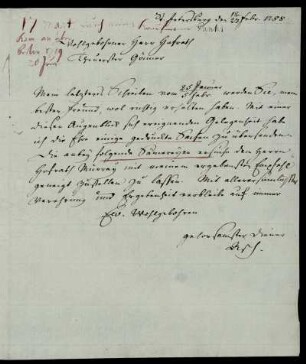 St. Petersburg den 12/23 Febr. 1788.
Wohlgebohrner Herr Hofrath
Theuerster Gönner
Mein letzteres Schreiben vom 25 Januar / 5 Febr. werden Sie, mein
bester Freund wol richtig erhalten haben. Mit einer
diesen Augenblick sich ereignenden Gelegenheit habe
ich die Ehre einige gedruckte Sachen zu übersenden.
Die anbey folgende Sämereyen ersuche dem Herrn
Hofrath Murray mit meinem ergebensten Empfehl
geneigt zustellen zu lassen. Mit aller ersinnlichsten
Verehrung und Ergebenheit verbleibe auf immer
Ew. Wohlgebohren
gehorsamster Diener
Asch.